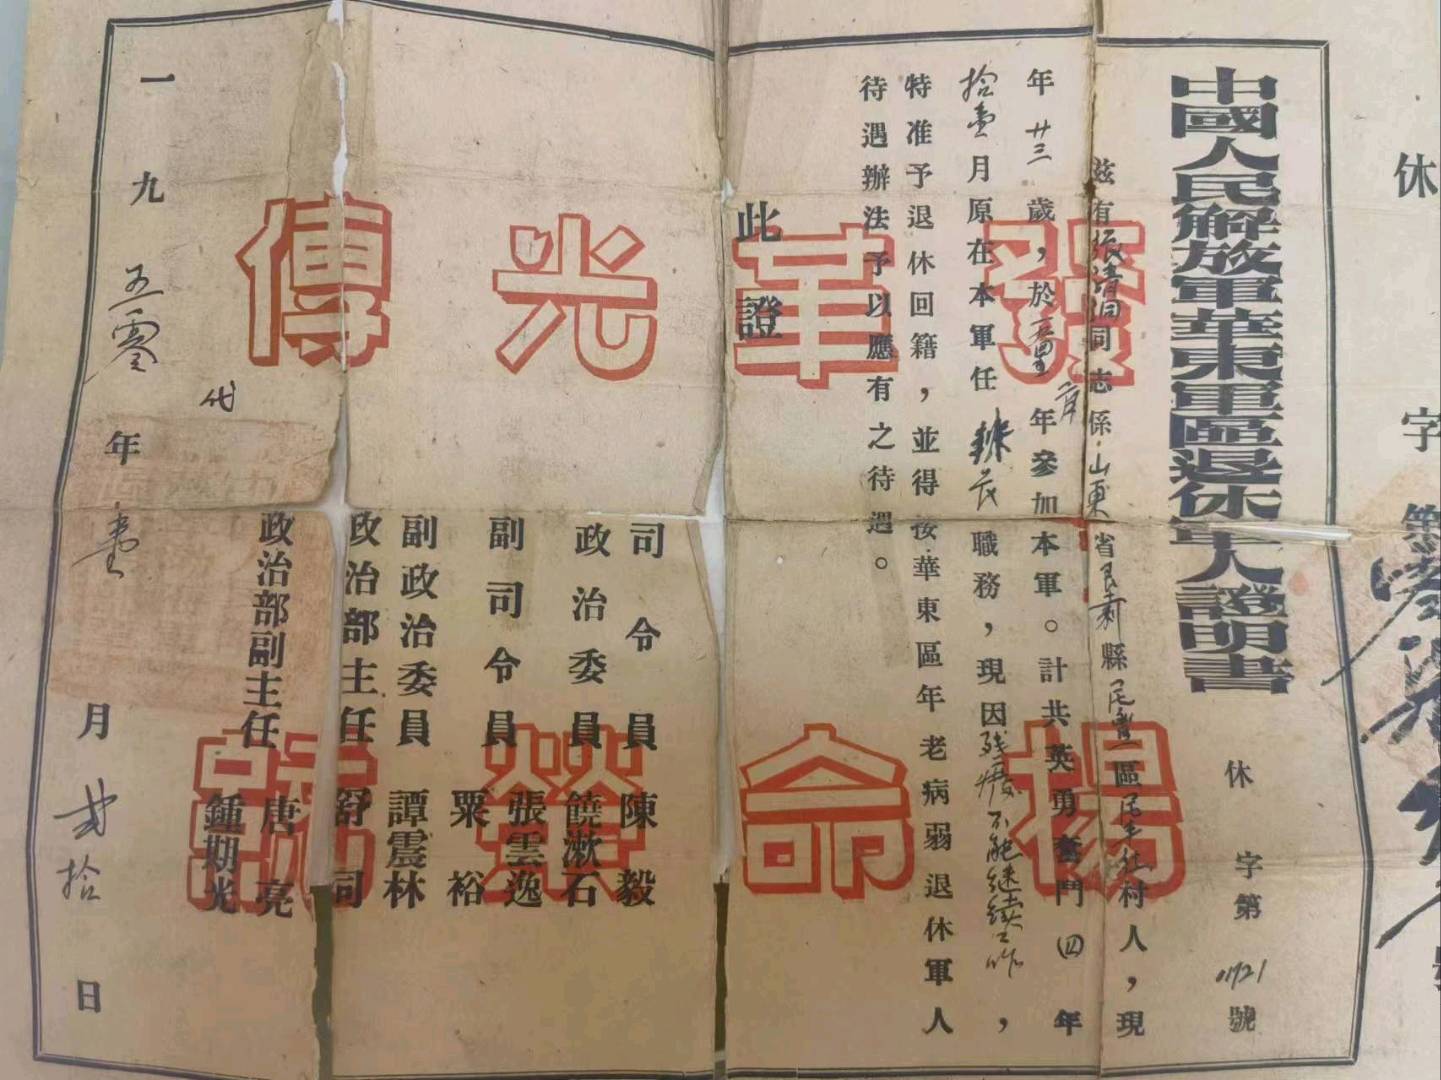 中國人民解放軍華東軍區退休軍人證明書
休字第01721號
茲有張清潤同志係山東省縣區村人，現
年廿三歲，於年參加本軍。計共英勇奮鬥四年
拾壹月原在本軍任職務，現因殘癈不能繼續工作，
特准予退休回籍，並得按華東區年老病弱退休軍人
待遇辦法予以應有之待遇。
此證
發揚革命光榮傳統
司令員 陳毅
政治委員 饒漱石
副司令員 張雲逸
粟裕
副政治委員 譚震林
政治部主任 舒同
政治部副主任 唐亮
鍾期光
代
一九五零年壹月貳拾日
休字第號